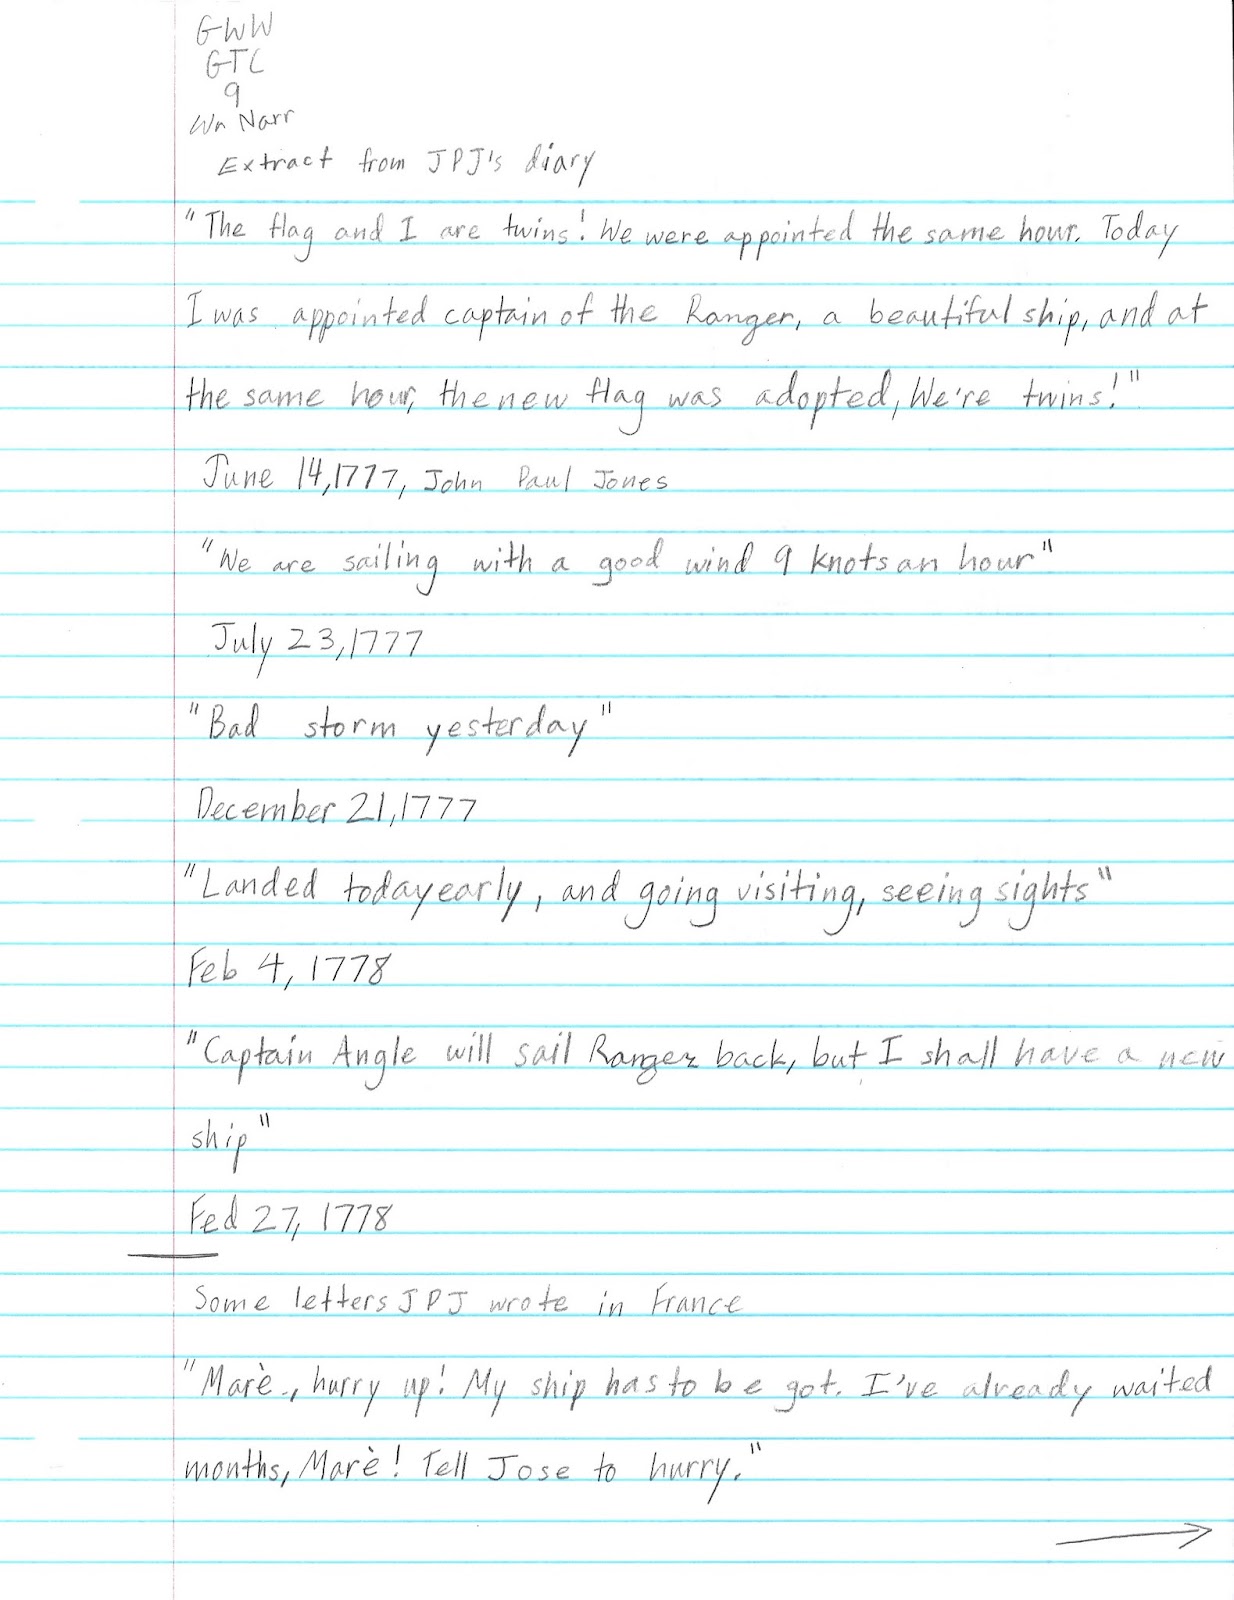 GWW
GTC
9
Wn Narr
Extract from JPJ's diary
"The flag and I are twins! We were appointed the same hour. Today
I was appointed captain of the Ranger, a beautiful ship, and at
the same hour, the new flag was adopted, We're twins!"
June 14, 1777, John Paul Jones
"We are sailing with a good wind 9 knots an hour"
July 23, 1777
"Bad storm yesterday"
December 21, 1777
"Landed today early, and going visiting, seeing sights"
Feb 4, 1778
"Captain Angle will sail Ranger back, but I shall have a new
ship"
Fed 27, 1778
Some letters JPJ wrote in France
"Marè., hurry up! My ship has to be got. I've already waited
months, Marè! Tell Jose to hurry."